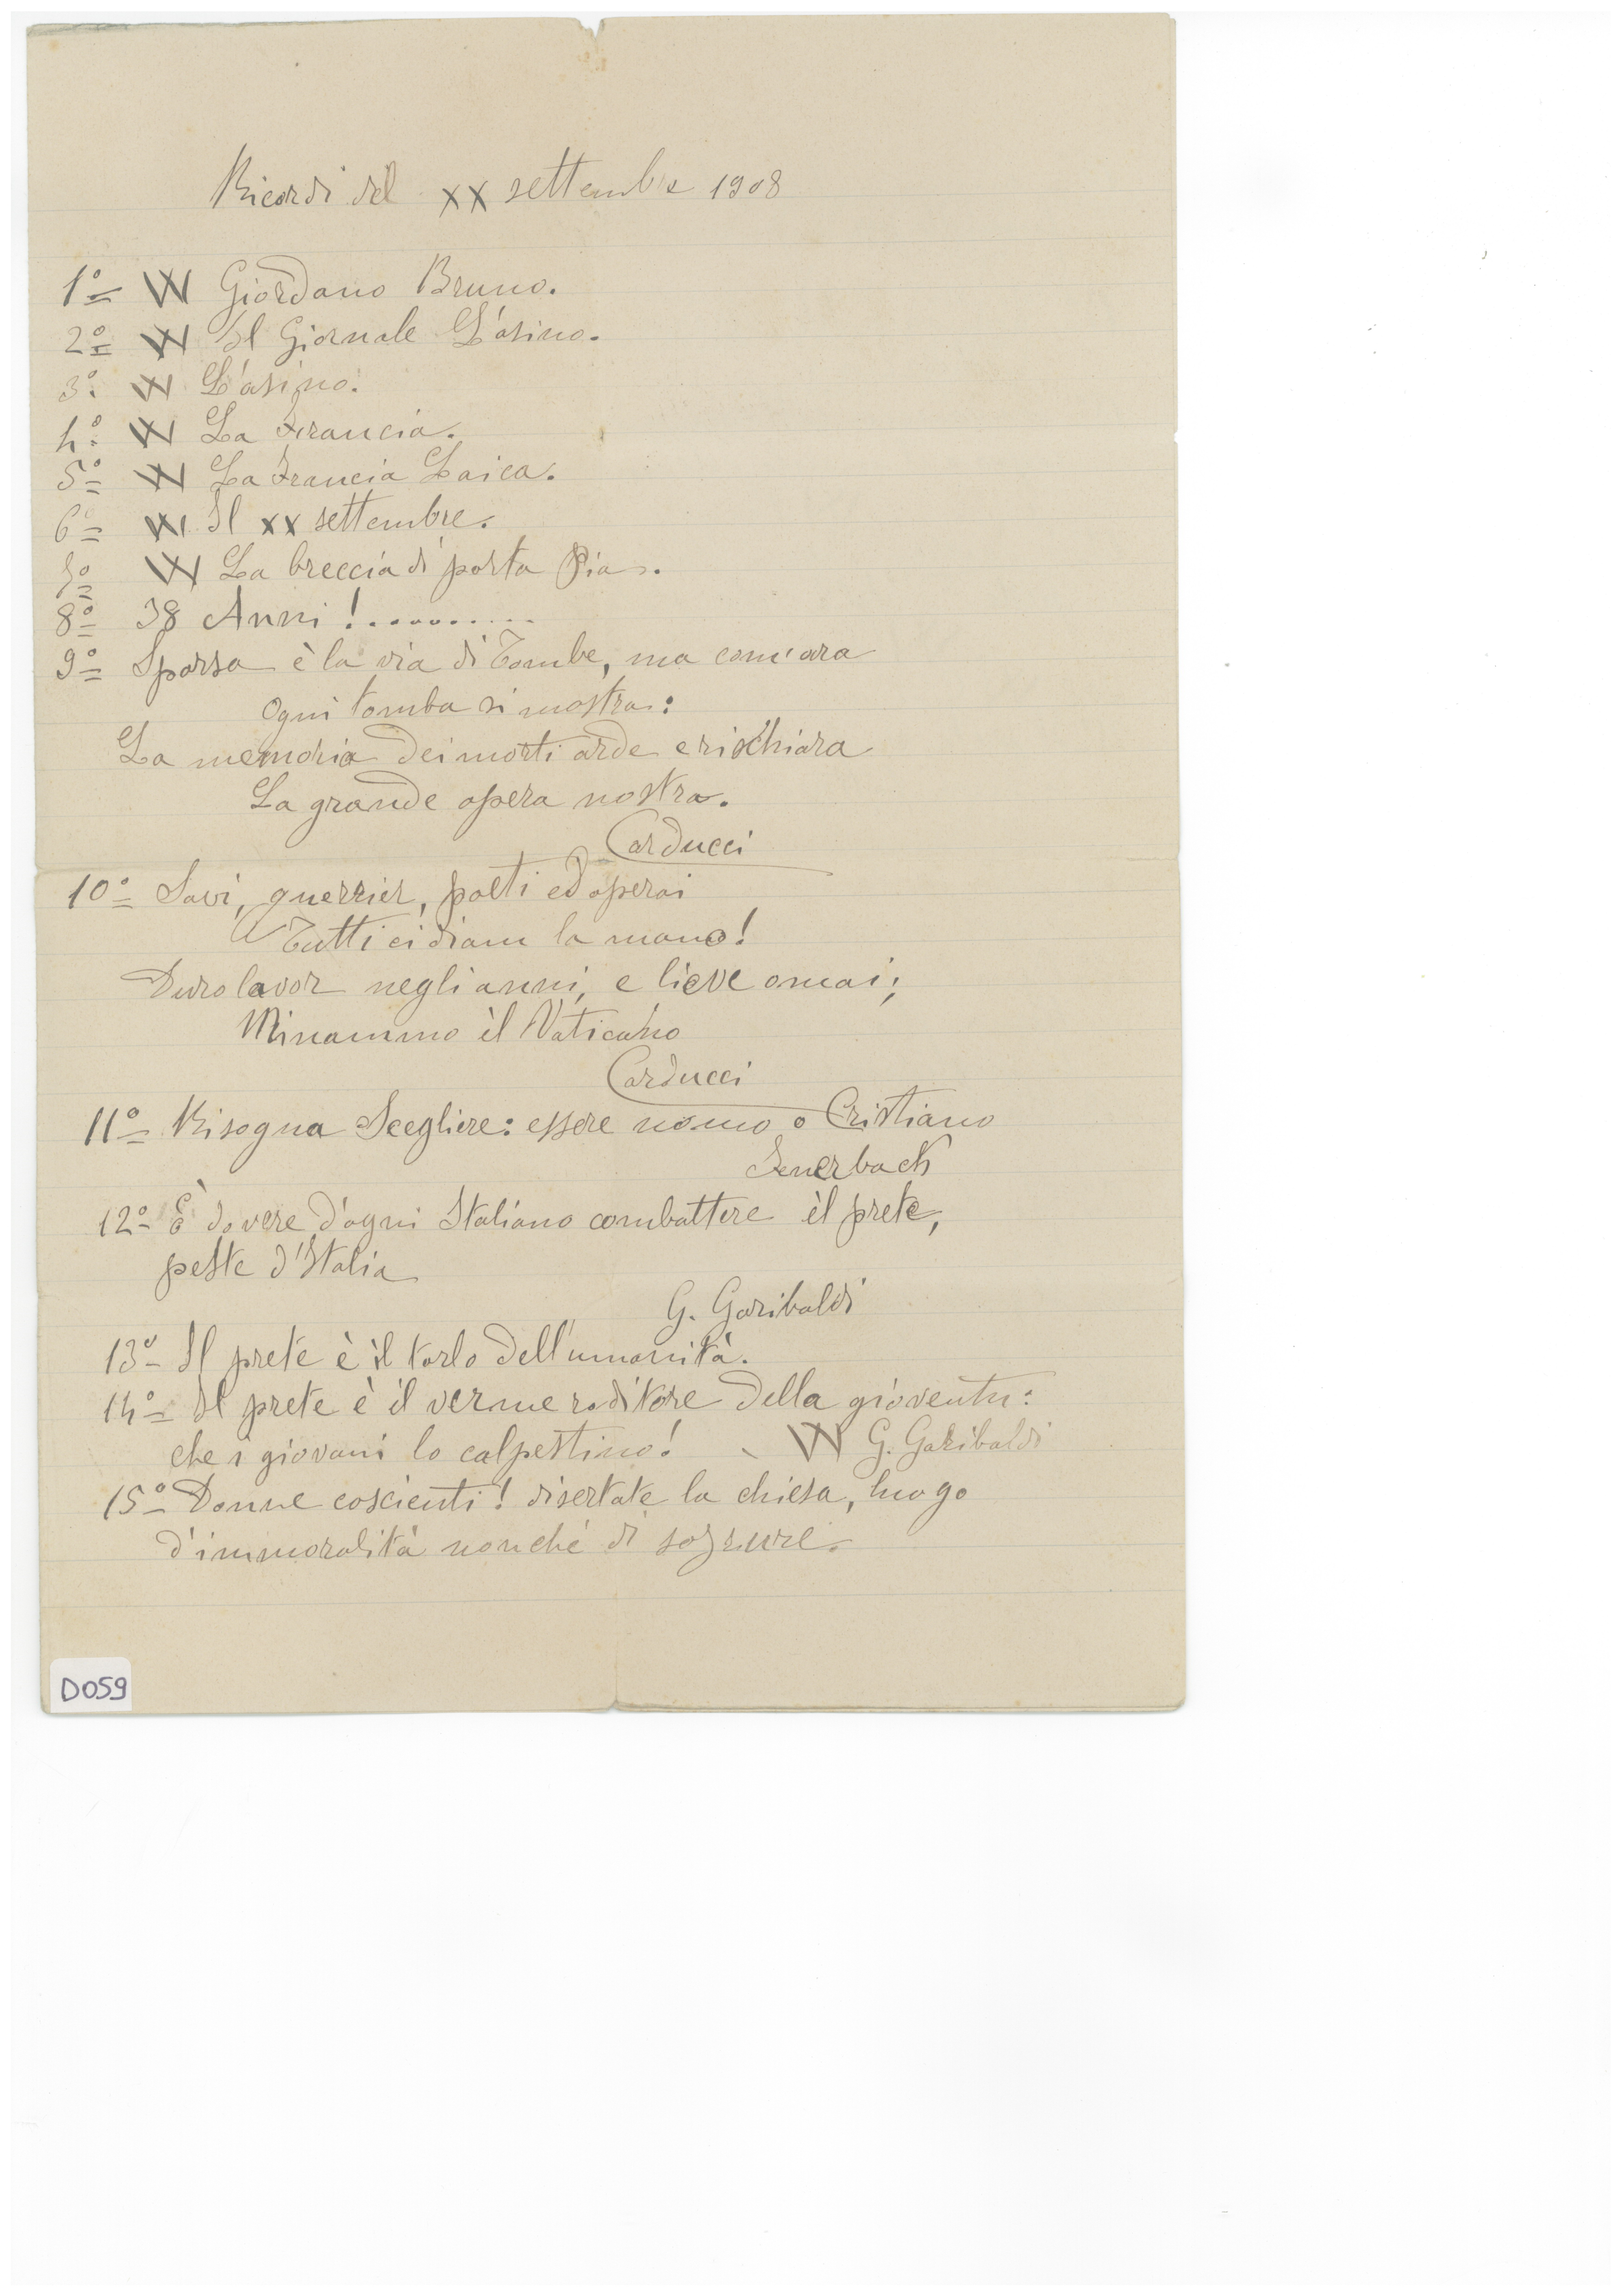 Ricordi del XX settembre 1908
1º W Giordano Bruno.
2º W Il Giornale L'asino.
3º W L'asino.
4º W La Francia.
5º W La Francia Laica.
6º W Il XX settembre.
7º W La breccia di porta Pia.
8º 38 Anni!..........
9º Sparsa è la via di Tombe, ma com'ara
Ogni tomba si mostra:
La memoria dei morti arde e rischiara
La grande opera nostra.
Carducci
10º Savi, guerrier, poeti ed operai
Tutti ci diam la mano!
Duro lavor negli anni, e lieve omai;
Minammo il Vaticano
Carducci
11º Bisogna Scegliere: essere uomo o Cristiano
Feuerbach
12º È dovere d'ogni Italiano combattere il prete,
peste d'Italia
G. Garibaldi
13º Il prete è il tarlo dell'umanità.
14º Il prete è il verme roditore della gioventu:
che i giovani lo calpestino! W G. Garibaldi
15º Donne coscienti! disertate la chiesa, luogo
d'immoralità nonché di sozzure.
D059